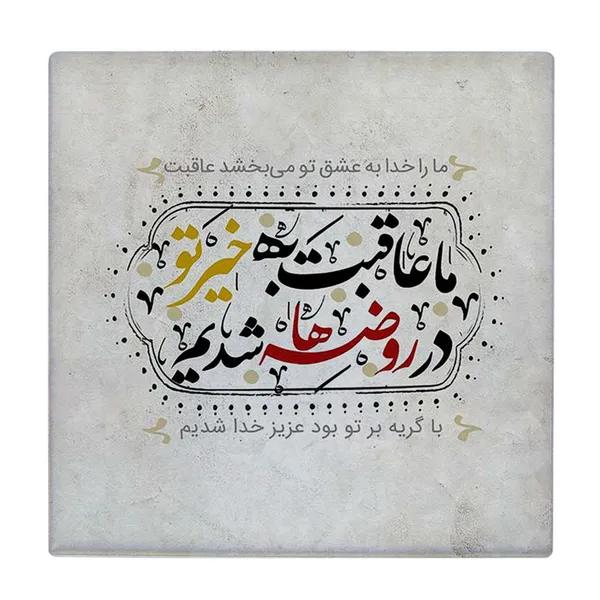 ما را خدا به عشق تو می‌بخشد عاقبت
ما عاقبت به خیر تو
در روضه ها شدیم
با گریه بر تو بود عزیز خدا شدیم